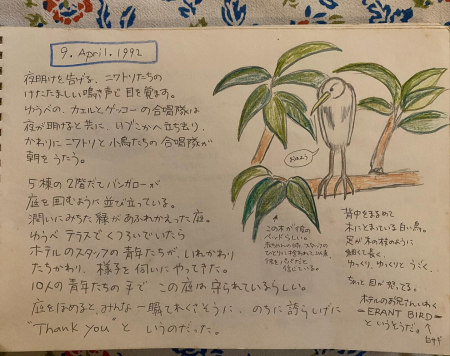 9. April. 1992
夜明けを告げる、ニワトリたちの
けたたましい鳴き声に目を覚ます。
ゆうべの、カエルとゲッコーの合唱隊は
夜が明けると共に、いずこかへ立ち去り、
かわりにニワトリと小鳥たちの合唱隊が
朝をうたう。
5棟の2階だてバンガローが
庭を囲むように並び立っている。
潤いにみちた緑があふれかえった庭。
ゆうべテラスでくつろいでいたら
ホテルのスタッフの青年たちが、いれかわり
たちかわり、様子を伺いにやってきた。
10人の青年たちの手で この庭は守られているらしい。
庭をほめると、みんな一瞬てれくさそうに、のちに誇らしげに
"Thank you" と いうのだった。
おはよう
この木が彼の
ベッドらしい。
背中をまるめて
木にとまっている白い鳥。
足が木の枝のように
細くて長く、
ゆっくり、ゆっくりとうごく。
ホテルのお兄さんいわく
-ERANT BIRD-
というそうだ。